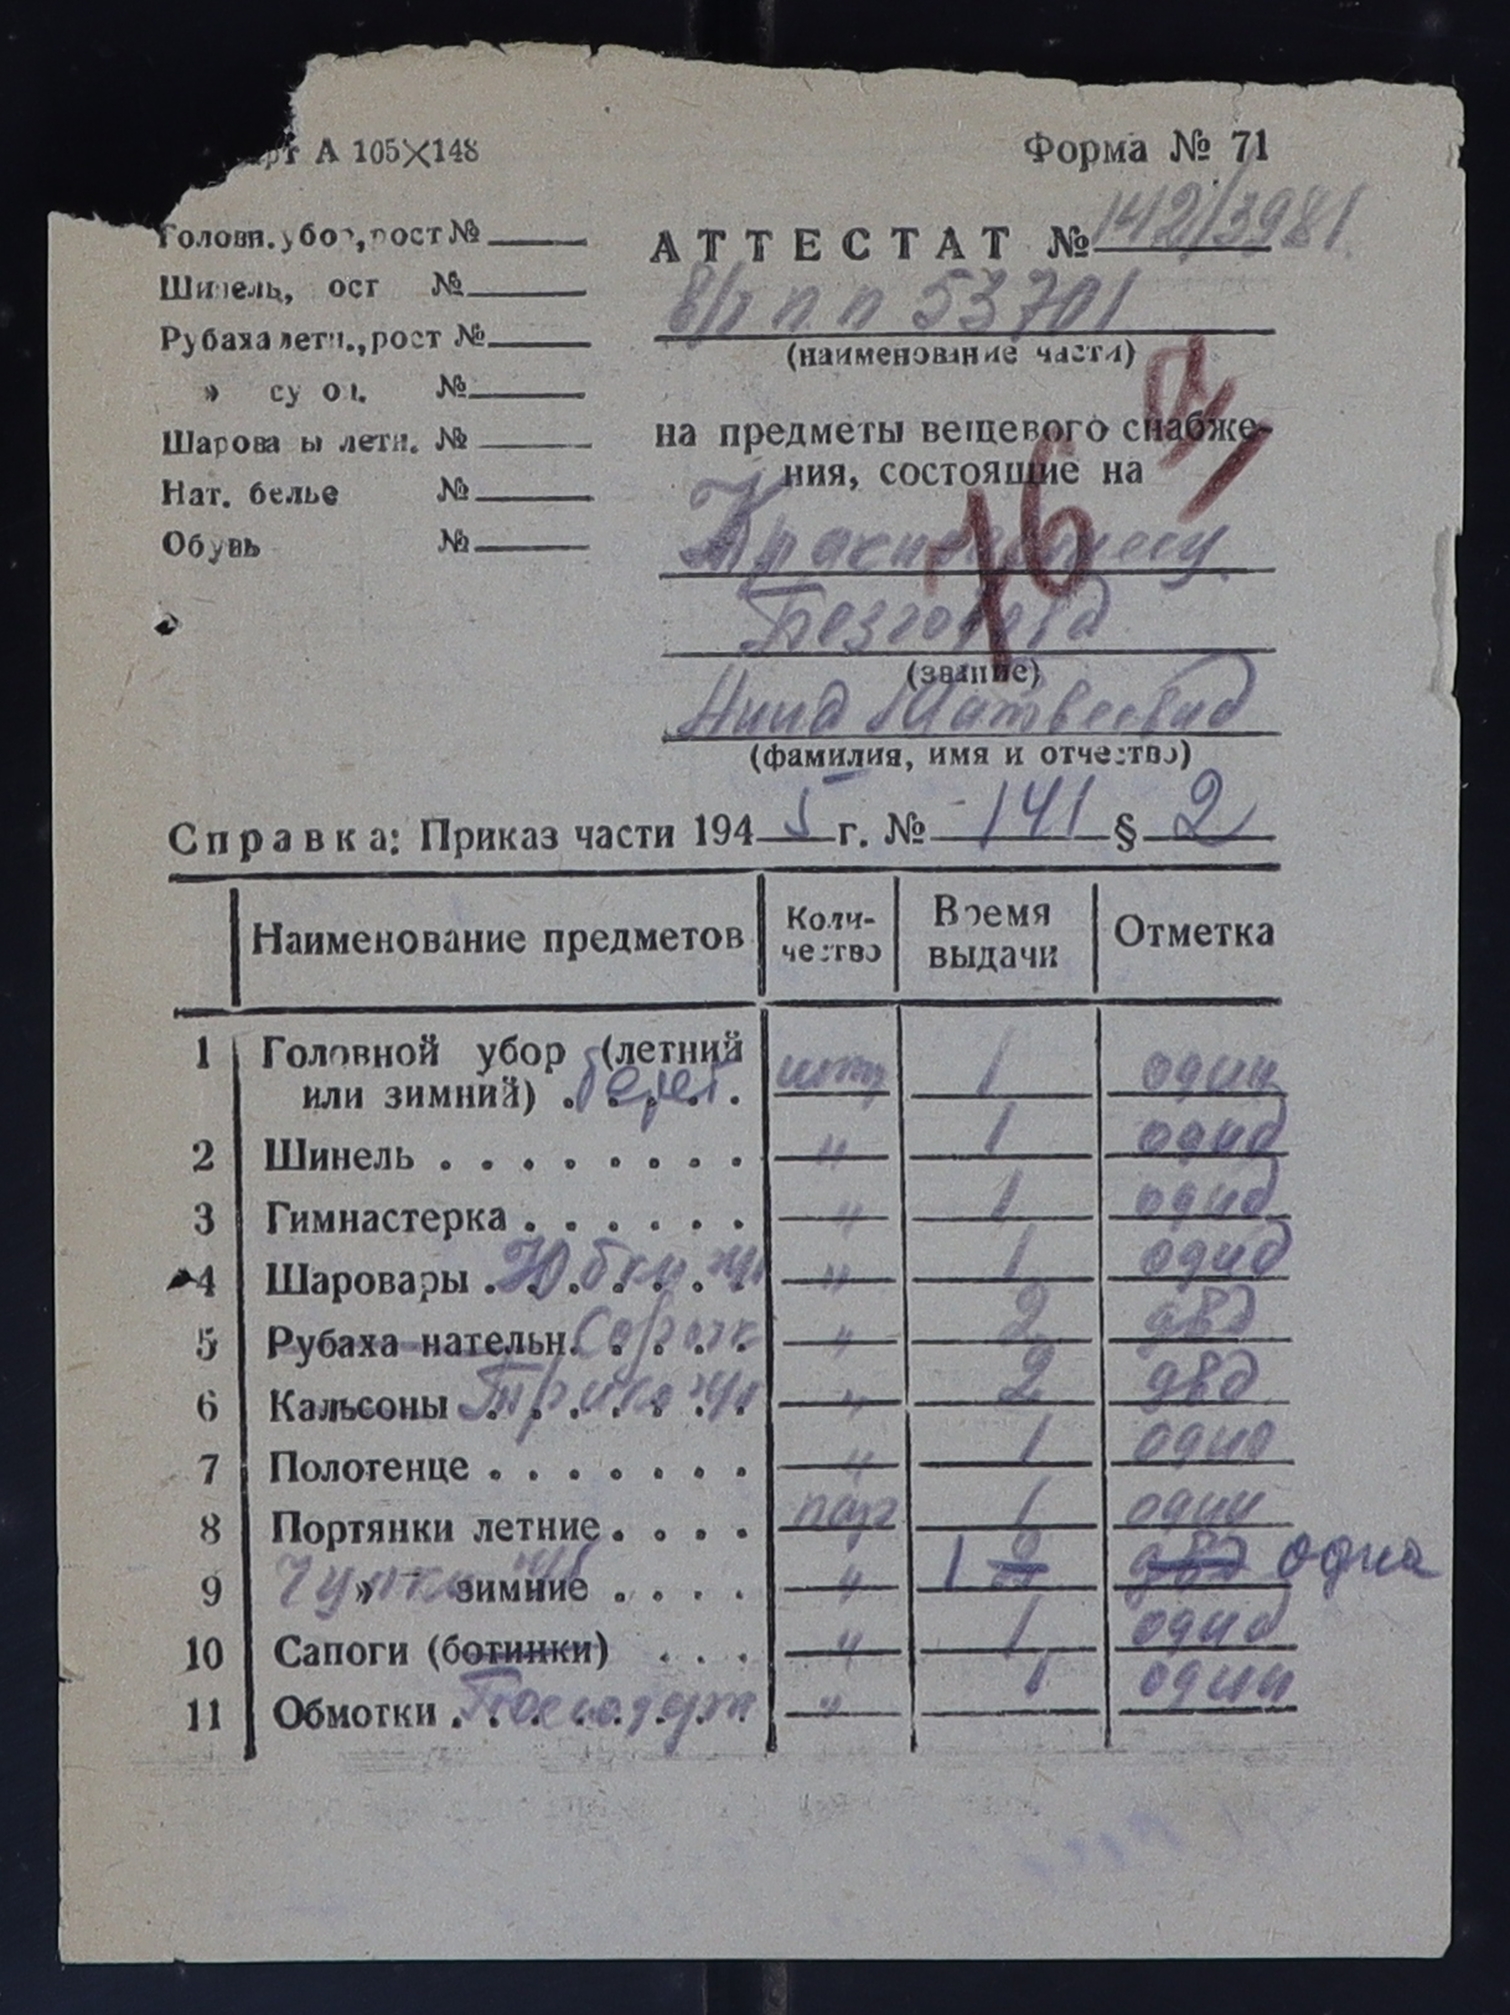 А 105×148
Форма № 71
Головн. убор, рост №
Шинель, рост №
Рубаха летн., рост №
» сукон. №
Шаровары летн. №
Нат. белье №
Обувь №
АТТЕСТАТ № 142/3981.
в/ч п. п 53701
(наименование части)
на предметы вещевого снабже-
ния, состоящие на
16
Красноармейцу
(звание)
Нина Матвеевна
(фамилия, имя и отчество)
Справка: Приказ части 1945 г. № 141 § 2
Наименование предметов Коли-чество Время выдачи Отметка
1 Головной убор (летний
или зимний) . берет . штук 1 один
2 Шинель . . . . . . . . " 1 одна
3 Гимнастерка . . . . . . " 1 одна
4 Шаровары . Юбки " 1 одна
5 Рубаха нательн. Сороч " 2 два
6 Кальсоны Трико " 2 два
7 Полотенце . . . . . . . " 1 одно
8 Портянки летние . . . . пар 1 один
9 Чулки » зимние . . . . " 1 2 два одна
10 Сапоги (ботинки) . . . " 1 одна
11 Обмотки . " 1 один